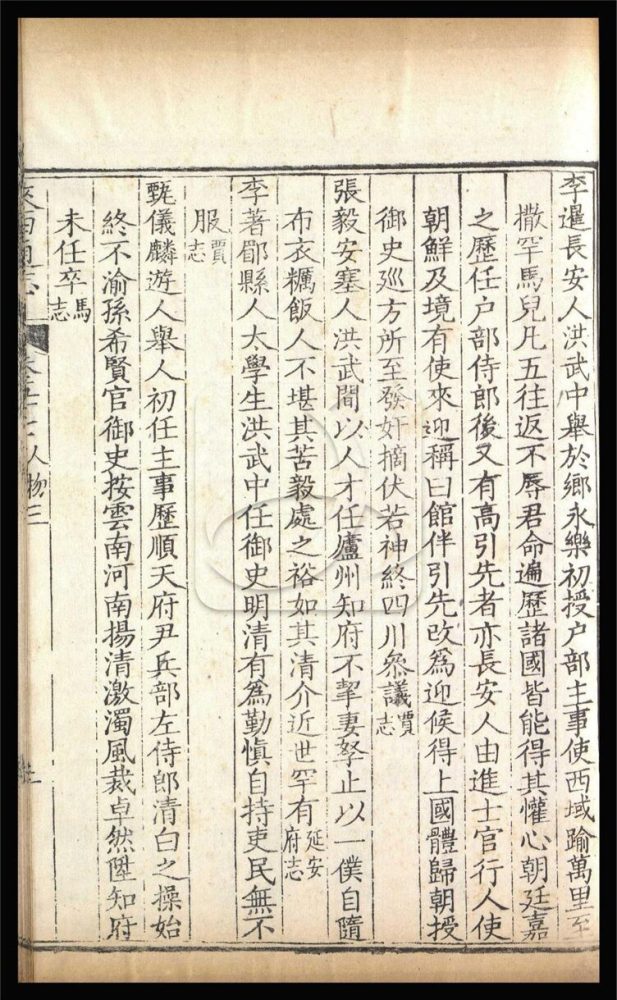 李暹長安人洪武中舉於鄉永樂初授户部主事使西域踰萬里至
撒罕馬兒凡五往返不辱君命遍歷諸國皆能得其懽心朝廷嘉
之歷任户部侍郎後又有高引先者亦長安人由進士官行人使
朝鮮及境有使來迎稱曰館伴引先改爲迎候得上國體歸朝授
御史巡方所至發奸摘伏若神終四川叅議賈志
張毅安塞人洪武間以人才任廬州知府不挈妻孥止以一僕自隨
布衣糲飯人不堪其苦毅處之裕如其清介近世罕有延安府志
李著郿縣人太學生洪武中任御史明清有爲勤愼自持吏民無不
服賈志
甄儀麟遊人舉人初任主事歷順天府尹兵部左侍郎清白之操始
終不渝孫希賢官御史按雲南河南揚清激濁風裁卓然陞知府
未任卒馬志
人物三